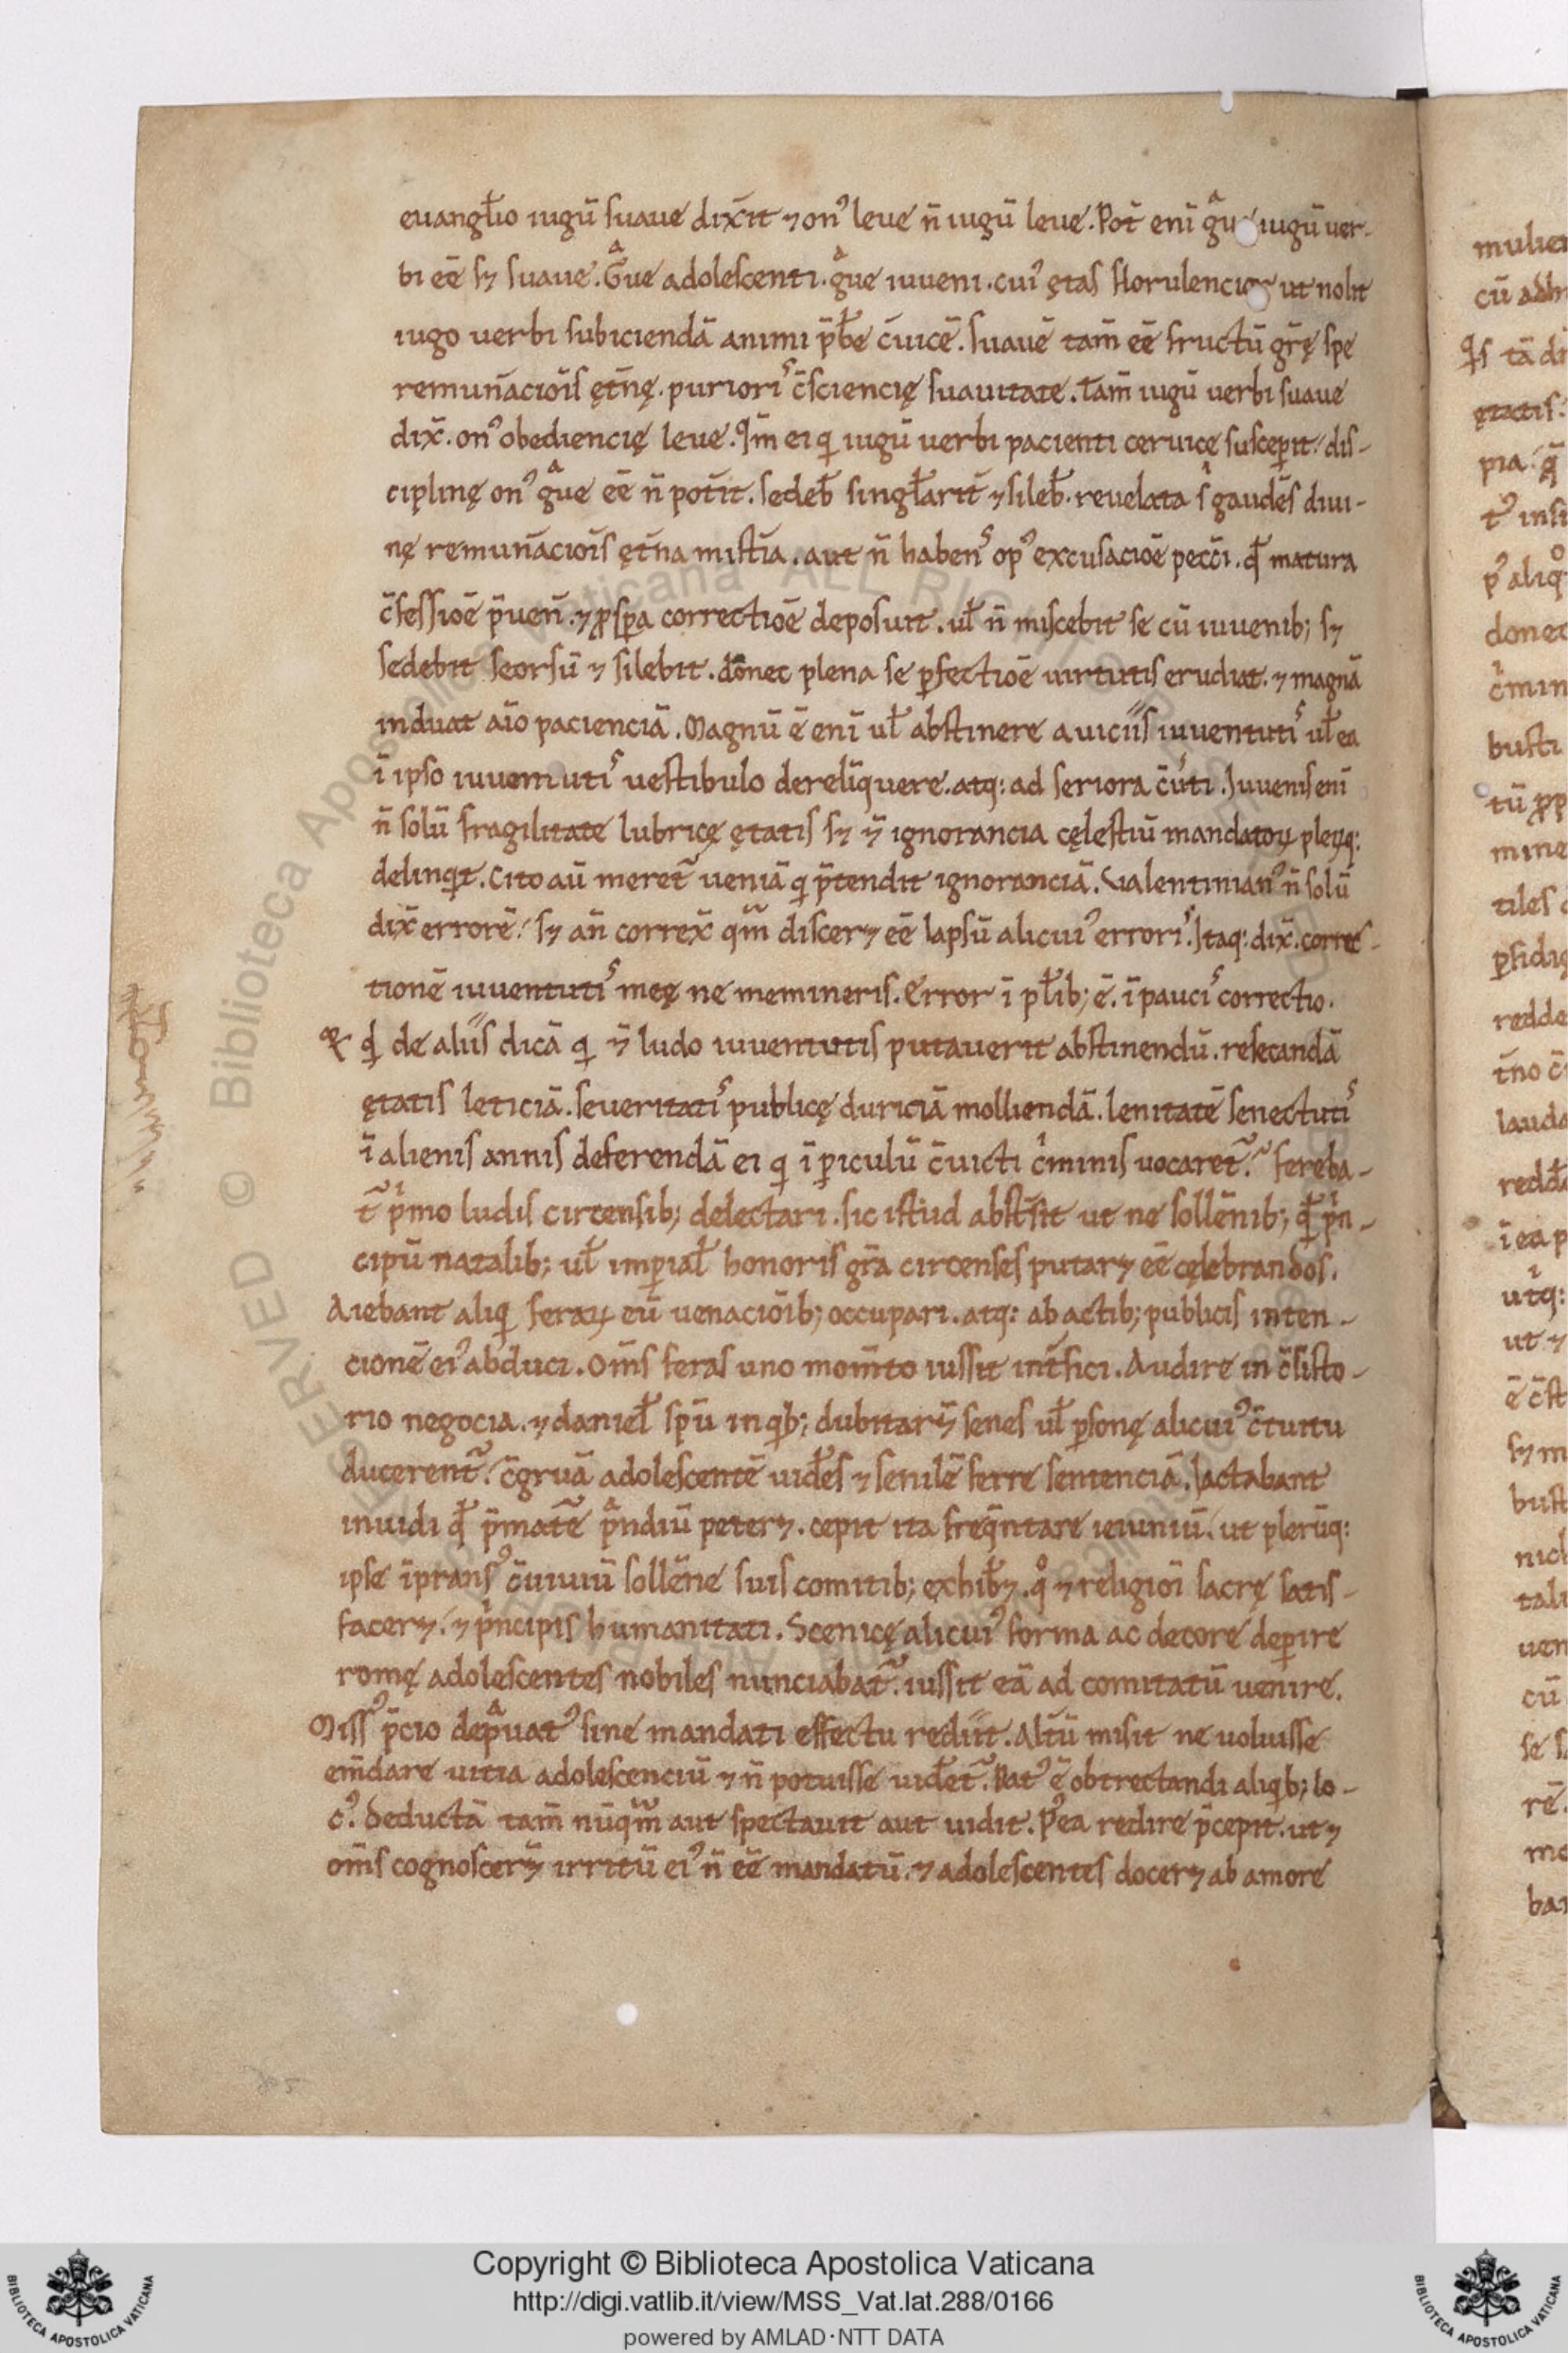 euangƚio iugū suaue dix̄it ⁊ onꝰ leue n̄ iugū leue. Pot̄ enī gͣue iugū uer-
bi eē sꝫ suaue. Gͣue adolescenti. gͣue iuueni. cuiꝰ ętas florulencior ut nolit
iugo uerbi subiciendā animi p̄ƀe c̄uicē. suauē tam̄ eē fructū gr̄ę spe
remun̄acioīs ęt̄nę. purioriꝰ c̄sciencię suauitate. Tam̄ iugū uerbi suaue
dix̄. onꝰ obediencię leue. Qm̄ ei q̇ iugū uerbi pacienti ceruicę suscep̱it / dis-
ciplinę onꝰ gͣue eē n̄ potīt. sedeƀ singƚarit̄ ⁊ sileƀ. reuelata s̓ gaudēs diui-
nę remun̄acioīs ęt̄na mist̄ia. aut n̄ habenꝰ opꝰ excusacioē pecc̄i. qđ matura
c̄fessioē p̄uen̄. ⁊ ꝓsp̱a correctioē deposuit. uƚ n̄ miscebit se cū iuuenib; sꝫ
sedebit seorsū ⁊ silebit. donec plena se p̱fectioē uirtutis erudiat. ⁊ magnā
induat aīo pacienciā. Magnū ē enī uƚ abstinere a uiciis iuuentutiꝰ uƚ ea
ī ipso iuuentutiꝰ uestibulo derelīquere. atq: ad seriora c̄u̓ti. Iuuenis enī
n̄ solū fragilitate lubricę ętatis sꝫ ⁊̄ ignorancia cęlestiū mandatoꝝ pleꝝq:
delinq̇t. Cito aū meret᷑ ueniā q̇ p̄tendit ignoranciā. Ualentinianꝰ n̄ solū
dix̄ errorē / sꝫ an̄ correx̄ qͫ discerꝫ eē lapsū alicuiꝰ erroriꝰ. Itaq: dix̄. correc-
tionē iuuentutiꝰ meę ne memineris. Error ī pƚib; ē. ī pauciꝰ correctio.
qđ de aliis dicā q̇ ⁊̄ ludo iuuentutis putauerit abstinendū. resecandā
ętatis leticiā. seueritatiꝰ publicę duriciā molliendā. lenitatē senectutiꝰ
ī alienis annis deferendā ei q̇ ī p̱iculū c̄uicti cͥminis uocaret᷑. fereba-
t᷑ pͥmo ludis circensib; delectari. sic istud abst̄sit ut ne sollēnib; qđ pͥn-
cipū natalib; uƚ imp̱iaƚ honoris gr̄a circenses putarꝫ eē cęlebrandos.
Aiebant aliq̇ feraꝝ eū uenacioīb; occupari. atq: ab actib; publicis inten-
cionē eiꝰ abduci. oms̄ feras uno mom̄to iussit int̄fici. Audire in c̄sisto-
rio negocia. ⁊ danieƚ spū in q̇b; dubitarꝫ̄ senes uƚ p̱sonę alicuiꝰ c̄tuitu
ducerent᷑. c̄gruā adolescentē uiđes ⁊ senilē ferre sentenciā. Iactabant
inuidi qđ p̄mat̄e pͣndiū peterꝫ. cepit ita freq̄ntare ieiuniū. ut plerūq:
ipse īpransꝰ c̄uiuiū sollēne suis comitib; exhiƀꝫ. qͦ ⁊ religioī sacrę satis-
facerꝫ. ⁊ pͥncipis humanitati. Scenicę alicuiꝰ forma ac decore dep̱ire
romę adolescentes nobiles nunciabat᷑. iussit eā ad comitatū uenire.
Missꝰ p̄cio depͣuatꝰ sine mandati effectu rediit. Alt̄ū misit ne uoluisse
em̄dare uitia adolescenciū ⁊ n̄ potuisse uiđet᷑. Datꝰ ē obtrectandi aliq̇b; lo-
cꝰ. Deductā tam̄ nūqͫ aut spectauit aut uidit. Pꝰea redire p̄cepit. ut ⁊
oms̄ cognoscerꝫ̄ irritū eiꝰ n̄ eē mandatū. ⁊ adolescentes docerꝫ ab amore
Copyright © Biblioteca Apostolica Vaticana
http://digi.vatlib.it/view/MSS_Vat.lat.288/0166
powered by AMLAD·NTT DATA